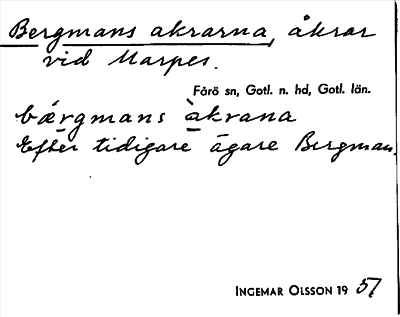 Bergmans akrarna, åkrar
vid Marpes.
Fårö sn, Gotl. n. hd, Gotl. län.
bǽrgmans àkrana
Efter tidigare ägare Bergman.
INGEMAR OLSSON 19 57